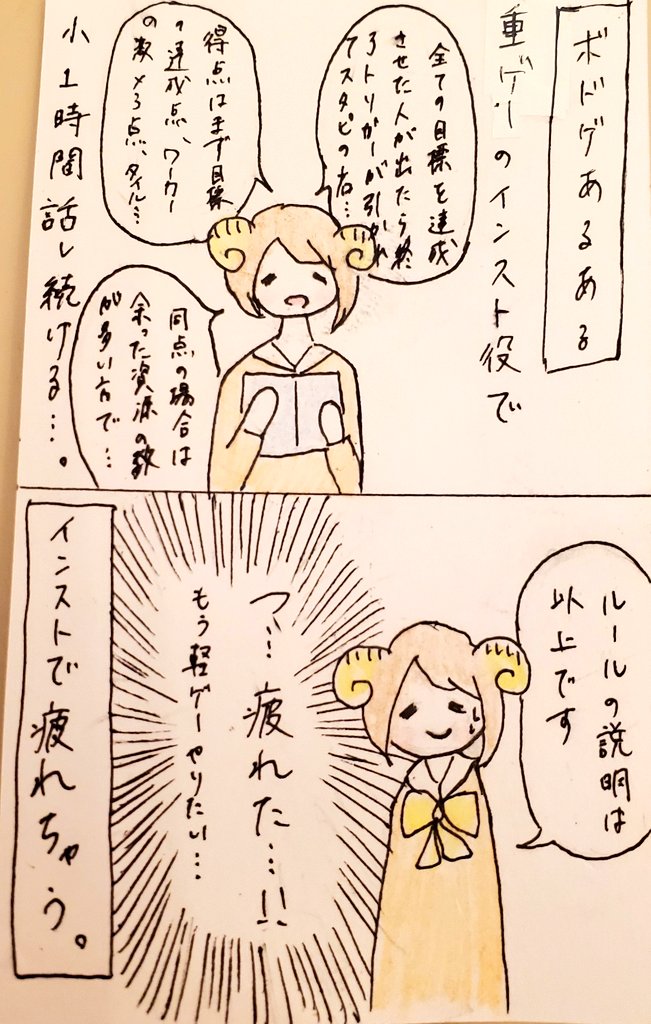 ボドゲあるある
重ゲーのインスト役で
全ての目標を達成
させた人が出たら終
了トリガーが引かれ
てスタピの右…
得点はまず目標
の達成点、ワーカー
の数×3点、タイル…
同点の場合は
余った資源の数
が多い方で…
小1時間話し続ける…。
ルールの説明は
以上です
つ…疲れた…!!
もう軽ゲーやりたい…
インストで疲れちゃう。